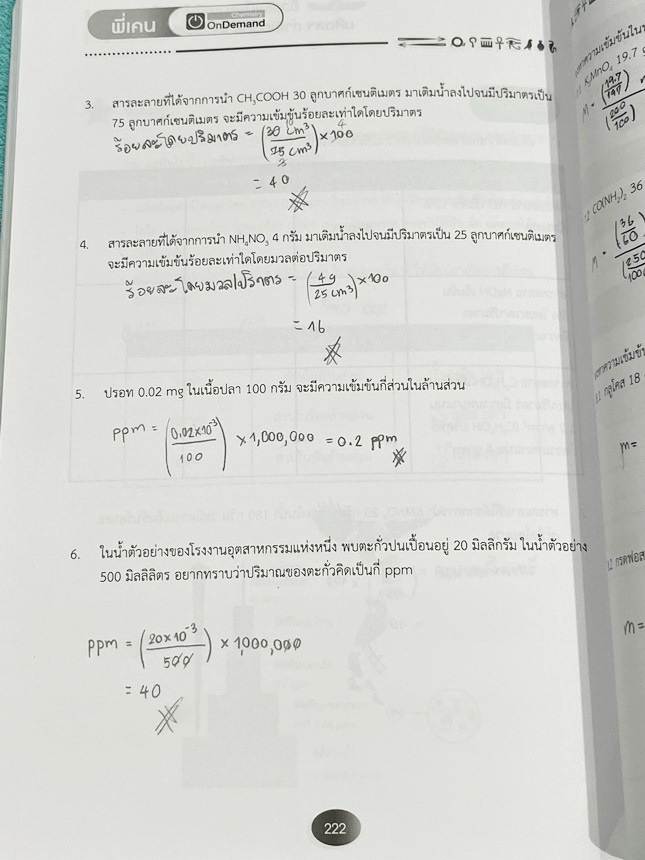 พี่เคน
Chemistry
OnDemand
3. สารละลายที่ได้จากการนำ CH₃COOH 30 ลูกบาศก์เซนติเมตร มาเติมน้ำลงไปจนมีปริมาตรเป็น
75 ลูกบาศก์เซนติเมตร จะมีความเข้มข้นร้อยละเท่าใดโดยปริมาตร
ร้อยละโดยปริมาตร = (30 cm³/75 cm³) × 100
= 40
4. สารละลายที่ได้จากการนำ NH₄NO₃ 4 กรัม มาเติมน้ำลงไปจนมีปริมาตรเป็น 25 ลูกบาศก์เซนติเมตร
จะมีความเข้มข้นร้อยละเท่าใดโดยมวลต่อปริมาตร
ร้อยละโดยมวล/ปริมาตร = (4g/25 cm³) × 100
= 16
5. ปรอท 0.02 mg ในเนื้อปลา 100 กรัม จะมีความเข้มข้นกี่ส่วนในล้านส่วน
ppm = (0.02×10⁻³/100) × 1,000,000 = 0.2 ppm
6. ในน้ำตัวอย่างของโรงงานอุตสาหกรรมแห่งหนึ่ง พบตะกั่วปนเปื้อนอยู่ 20 มิลลิกรัม ในน้ำตัวอย่าง
500 มิลลิลิตร อยากทราบว่าปริมาณของตะกั่วคิดเป็นกี่ ppm
ppm = (20×10⁻³/500) × 1,000,000
= 40
222